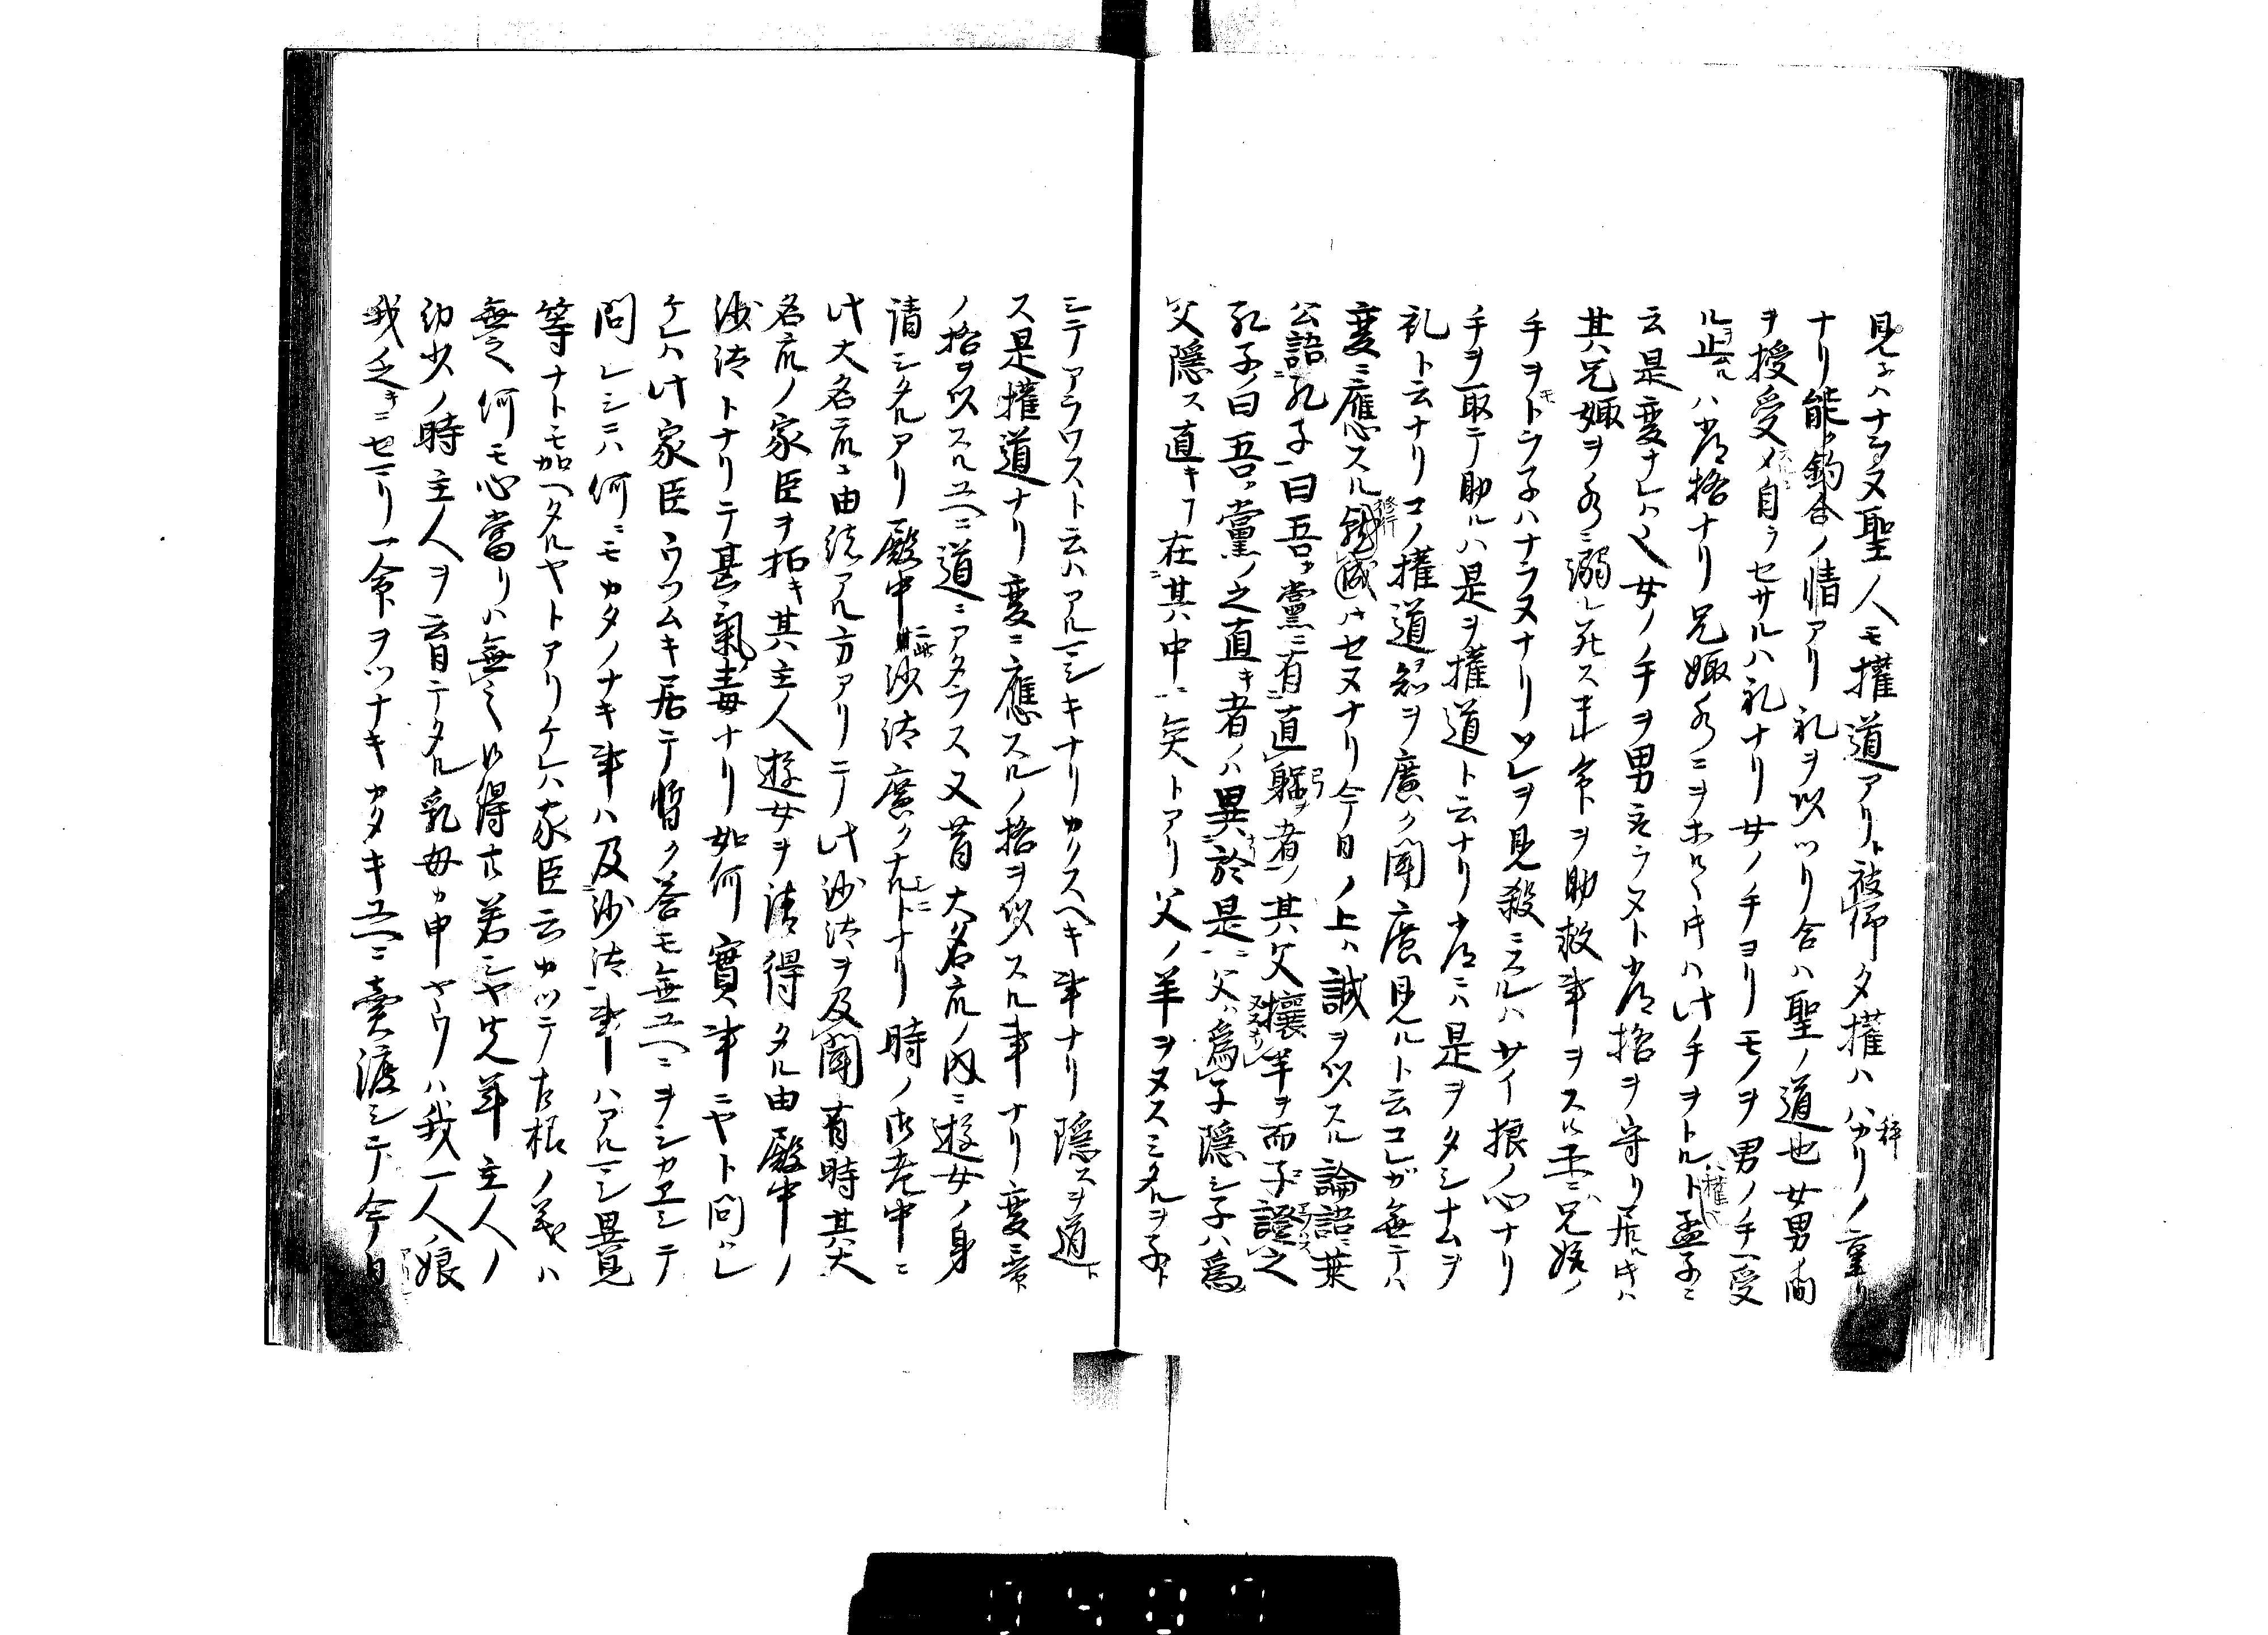 見ネハナラヌ聖人モ權道アリト被仰タ權ハハカリノ重リ
ナリ能ク釣合ノ情アリ礼ヲ以ツリ合ハ聖ノ道也女男ノ間
ヲ授受メ自ラセサルハ礼ナリ女ノ手ヨリモノヲ男ノ手ヘ受
ル止ハ常格ナリ兄嫂水ニヲホルヽ時ハ此手ヲトルト孟子ニ
云是変ナレハ女ノ手ヲ男トラヌト常格ヲ守リ居ル時ハ
其兄嫂ヲ水ニ溺レ死ス 命ヲ助救事ヲスルニ兄嫂ノ
手ヲトラネハナラヌナリソレヲ見殺ニスルハサイ狼ノ心ナリ
手ヲ取テ助ルハ是ヲ權道ト云ナリ常ニハ是ヲタシナムヲ
礼ト云ナリコノ權道知ヲ廣ク聞廣見ルト云コレガ無テハ
変ニ應スル ハセヌナリ今日ノ上ハ誠ヲ以スル論語ニ葉
公語孔子曰吾黨ニ有直躬者其父攘羊ヲ而子證之
孔子ノ曰吾黨ノ之直キ者ハ異於是ニ父ハ爲子隠シ子ハ爲
父隠ス直キヿ在其中ニ矣トアリ父ノ羊ヲヌスミタルヲ子ト
シテアラワスト云ハアルマシキナリカクスヘキ事ナリ隠スヲ道ト
ス是權道ナリ変ニ應スルノ格ヲ以スル事ナリ変ニ常
ノ格ヲ以スルユヘニ道ニアタラス又昔大名衆ノ内ニ遊女ノ身
請シタルアリ殿中沙汰廣クナルトナリ時ノ御老中ニ
此大名衆ニ由緒アル方アリテ此沙汰ヲ及聞有時其大
名衆ノ家臣ヲ招キ其主人遊女ヲ請得タル由殿中ノ
沙汰トナリテ甚氣毒ナリ如何實事ニヤト問レ
ケレハ此家臣ウツムキ居テ暫ク答モ無ユヘニヲシカエシテ
問レシニハ何ニモカタノナキ事ハ及沙汰事ハアルマシ異見
等ナトモ加ヘタルヤトアリケレハ家臣云カツテ左様ノ義ハ
無之何モ心當リハ無之心得 若シヤ先年主人ノ
幼少ノ時主人ヲ育テタル乳母カ申ヤウハ我一人ノ娘
我乏キニセマリ一命ヲツナキカタキユヘニ賣渡シテ今日